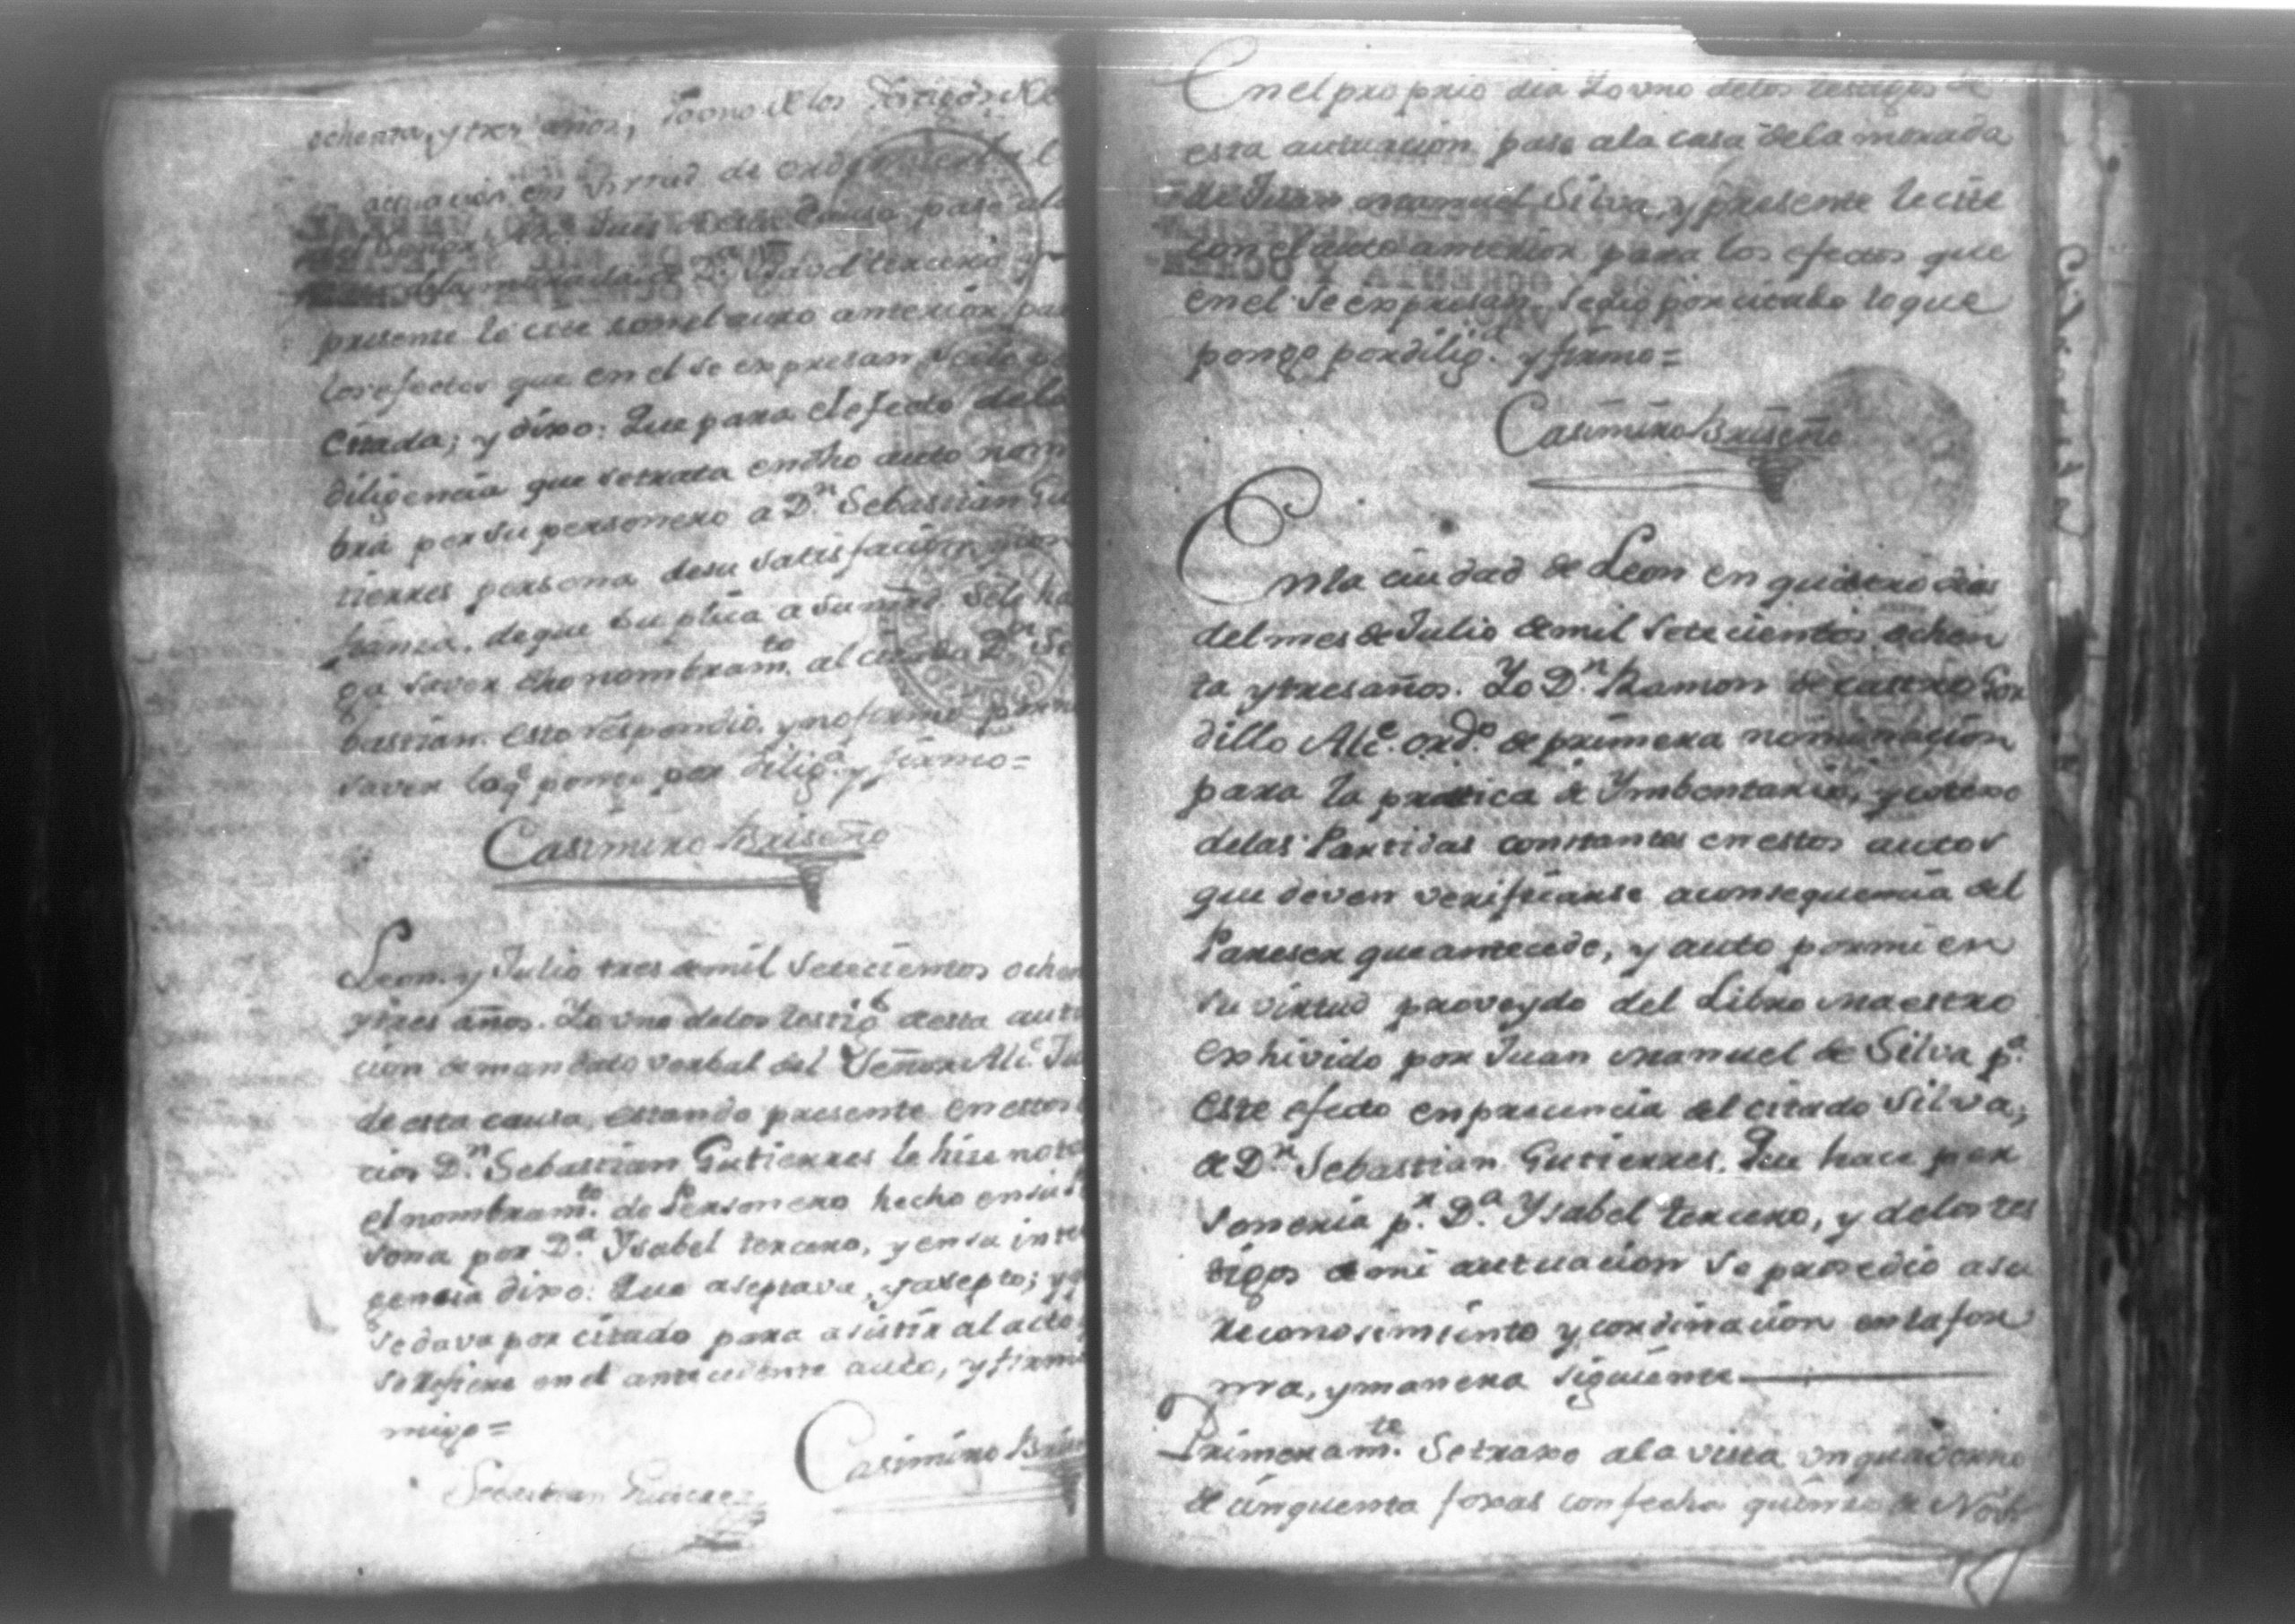 ochenta, y tres años, Yo uno de los Testigos de
actuacion en virtud de orden verbal
del Señor Alc.e Jues de esta Causa pase a la
de la morada de D.a Ysavel tercero y
presente le cite con el auto anterior pa
los efectos que en el se expresan,
Citada; y dixo: Que para el efecto de la
diligencia que se trata en dho auto nom
bra por su personero a D.n Sebastian Gu
tierres persona de su satisfacion, y con
fianza, de que suplica a su mrd. Se le ha
ga saver dho nombram.to al citado D.n Se
bastian. esto respondio, y no firmo por no
saver lo q.e pongo por dilig.a y firmo=
Casimiro Briseño
Leon. y Julio tres de mil setecientos ochen
y tres años. Yo uno de los testig.s de esta autu
cion de mandato verbal del Señor Alc.e Ju
de esta causa, estando presente en estos
cios D.n Sebastian Gutierres le hise noto
el nombram.to de Personero hecho en su P
sona por D.a Ysabel tercero, y en su inte
gencia dixo: Que aseptava, y asepto; y q
se dava por citado para asistir al acto
se refiere en el antecedente auto, y firmo
migo=
Sebastian Gutierrez
Casimiro Bris
En el proprio dia Yo uno de los testigos de
esta autuacion pase a la casa de la morada
de Juan manuel Silva, y presente le cite
con el auto anterior para los efectos que
en el se expresan. Se dio por citado lo que
pongo por dilig.a y firmo=
Casimiro Briseño
En la ciudad de Leon en quinse dias
del mes de Julio de mil setecientos ochen
ta y tres años. Yo D.n Ramon de castro Gor
dillo Alc.e ord.o de primera nominacion
para la practica de Ymbentario, y cotexo
de las Partidas constantes en estos autos
que deven verificarse a consequencia del
Pareser que antecede, y auto por mi en
su virtud proveydo del Libro Maestro
exhivido por Juan Manuel de Silva p.a
este efecto en presencia del citado Silva,
de D.n Sebastian Gutierres. Que hace per
soneria p.r D.a Ysabel tercero, y de los tes
tigos de mi autuacion se prosedio a su
reconosimiento y cordinacion en la for
ma, y manera siguiente
Primeram.te Se traxo a la vista un quaderno
de cinquenta foxas con fecha quinse de Nov.e